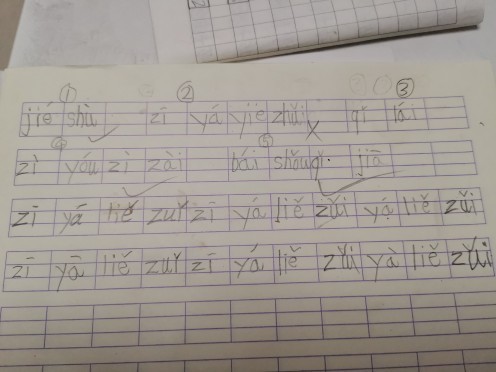 ① ② ③
jié shù zī yá yiě zhǔi qǐ lái
④ ⑤
zì yóu zì zài bái shǒu qǐ jiā
zī yá liě zuǐ zī yá liě zǔi yá liě zǔi
zī yā liě zuǐ zī yá liě zǔi yà liě zǔi